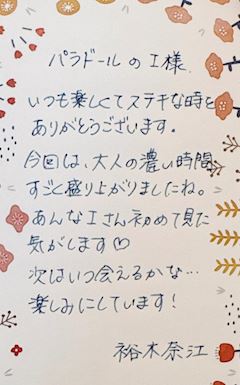 パラドールの I様
いつも楽しくてステキな時を
ありがとうございます。
今回は、大人の濃い時間
すごく盛り上がりましたね。
あんな Iさん初めて見た
気がします♡
次はいつ会えるかな…
楽しみにしています！
裕木奈江